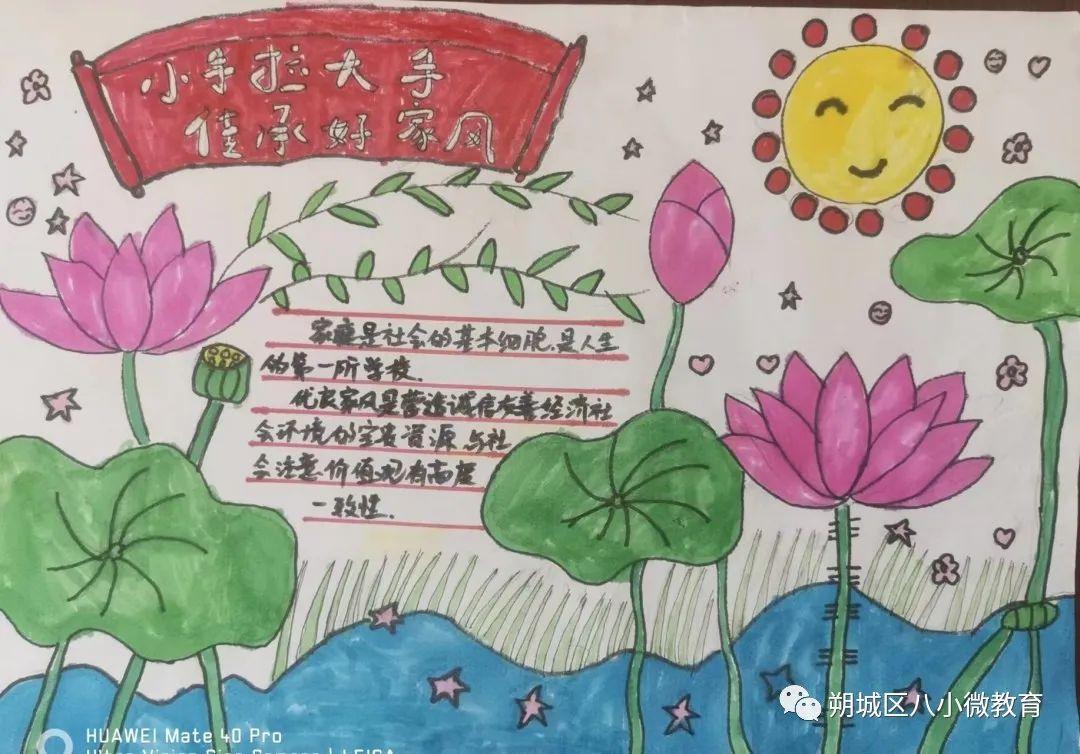 小手拉大手
佳承好家风
家庭是社会的基本细胞.是人生
的第一所学校.
优良家风是营造诚信友善经济社
会环境的宝贵资源与社
会注意价值观有高度
一致性.
朔城区八小微教育
HUAWEI Mate 40 Pro
Ultra Vision Cine Camera | LEICA